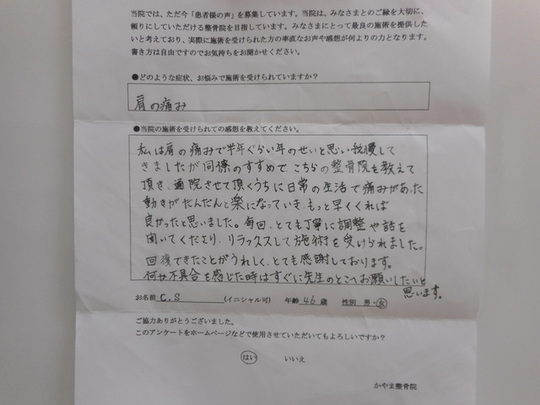 当院では、ただ今「患者様の声」を募集しています。当院は、みなさまとのご縁を大切に、
頼りにしていただける整骨院を目指しています。みなさまにとって最良の施術を提供した
いと考えており、実際に施術を受けられた方の率直なお声や感想が何よりの力となります。
書き方は自由ですのでお気持ちをお聞かせください。
●どのような症状、お悩みで施術を受けられていますか?
肩の痛み
●当院の施術を受けられての感想を教えてください。
私は肩の痛みで半年ぐらい年のせいと思い我慢して
きましたが同僚のすすめで、こちらの整骨院を教えて
頂き、通院させて頂くうちに日常の生活で痛みがあった
動きがだんだんと楽になっていき、もっと早くくれば
良かったと思いました。毎回、とても丁寧に調整や話を
聞いてくださり、リラックスして施術を受けられました。
回復できたことがうれしく、とても感謝しております。
何か不具合を感じた時はすぐに先生のとこへお願いしたいと
思います。
お名前 C.S (イニシャル可) 年齢 46 歳 性別 男・女
ご協力ありがとうございました。
このアンケートをホームページなどで使用させていただいてもよろしいですか?
はい いいえ
かやま整骨院